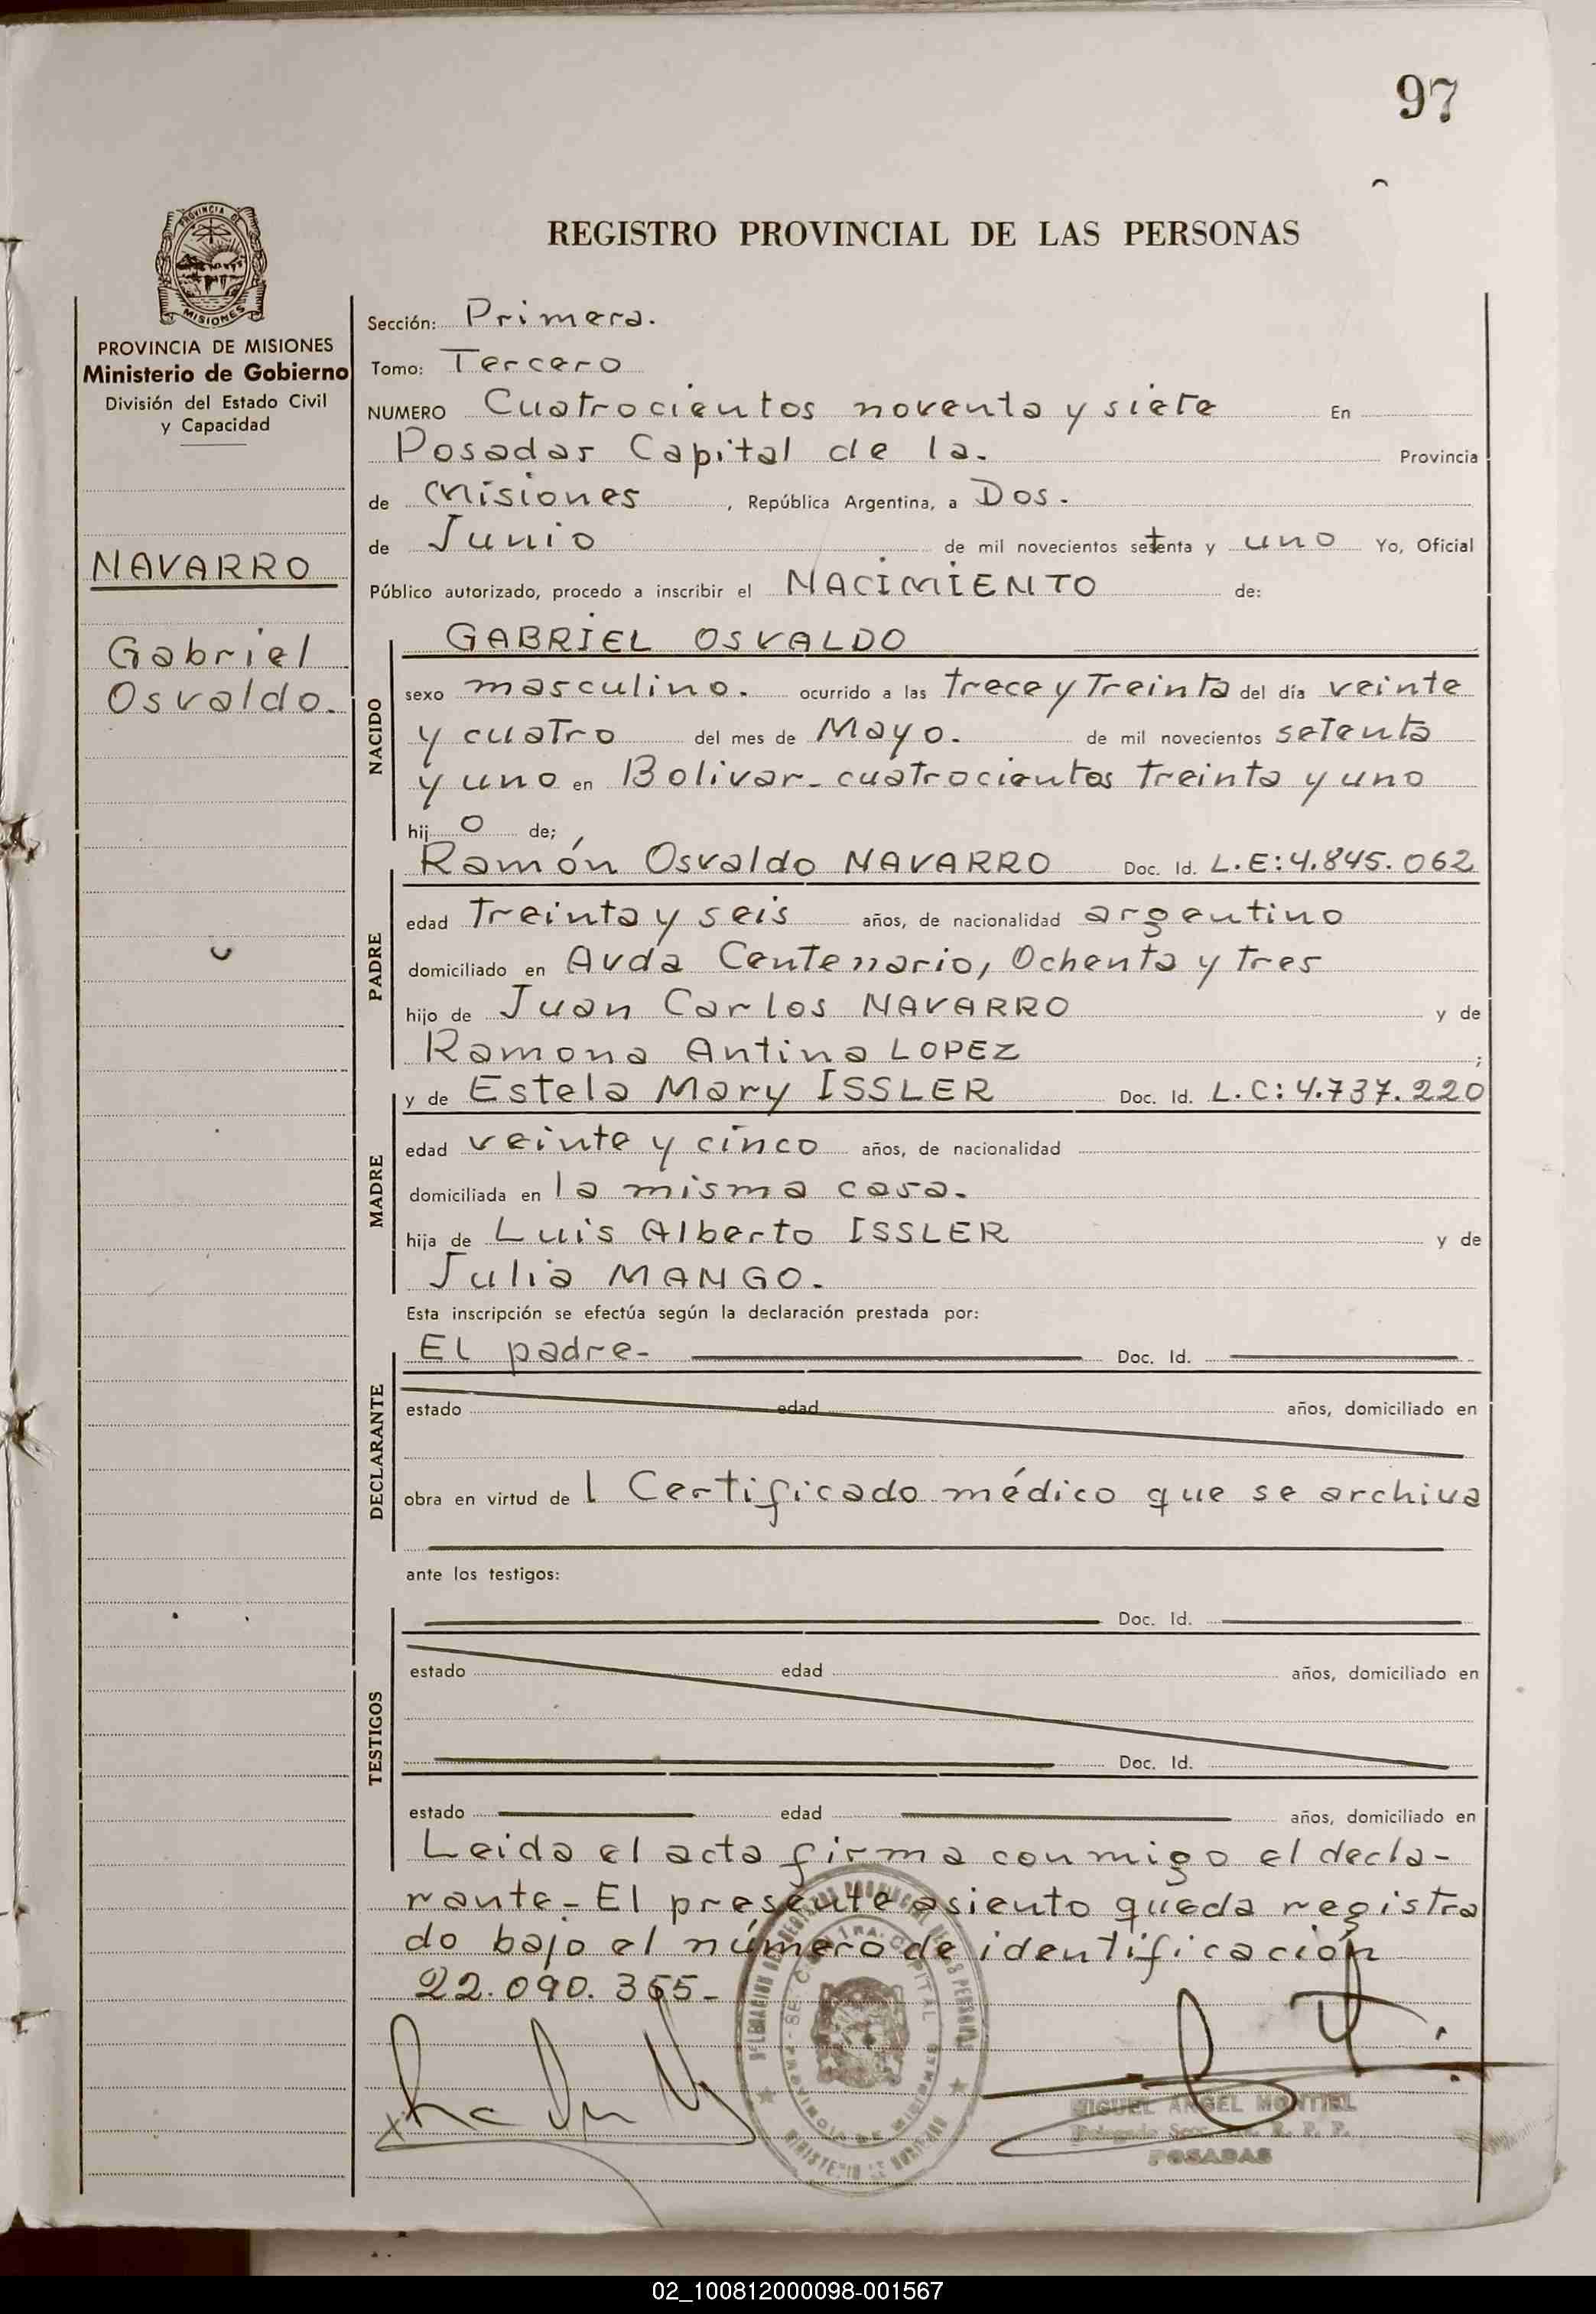 97
REGISTRO PROVINCIAL DE LAS PERSONAS
PROVINCIA DE
MISIONES
PROVINCIA DE MISIONES
Ministerio de Gobierno
División del Estado Civil
y Capacidad
NAVARRO
Gabriel
Osvaldo.
Sección: Primera.
Tomo: Tercero
NUMERO Cuatrocientos noventa y siete En
Posadas Capital de la. Provincia
de Misiones, República Argentina, a Dos.
de Junio de mil novecientos setenta y uno Yo, Oficial
Público autorizado, procedo a inscribir el NACIMIENTO de:
NACIDO
GABRIEL OSVALDO
sexo masculino. ocurrido a las Trece y Treinta del día veinte
y cuatro del mes de Mayo. de mil novecientos setenta
y uno en Bolivar - cuatrocientos treinta y uno
hijo de;
PADRE
Ramón Osvaldo NAVARRO Doc. Id. L.E:4.845.062
edad Treinta y seis años, de nacionalidad argentino
domiciliado en Avda Centenario, Ochenta y tres
hijo de Juan Carlos NAVARRO y de
Ramona Antina LOPEZ ;
MADRE
y de Estela Mary ISSLER Doc. Id. L.C:4.737.220
edad veinte y cinco años, de nacionalidad
domiciliada en la misma casa.
hija de Luis Alberto ISSLER y de
Julia MANGO.
Esta inscripción se efectúa según la declaración prestada por:
DECLARANTE
El padre- Doc. Id.
estado edad años, domiciliado en
obra en virtud del Certificado médico que se archiva
ante los testigos:
TESTIGOS
Doc. Id.
estado edad años, domiciliado en
Doc. Id.
estado edad años, domiciliado en
Leida el acta firma conmigo el decla-
rante - El presente asiento queda registra
do bajo el número de identificación
22.090.365-
MIGUEL ANGEL MONTIEL
POSADAS
02_100812000098-001567